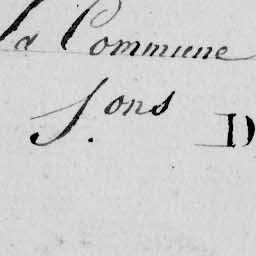 la Commune
S.ons D